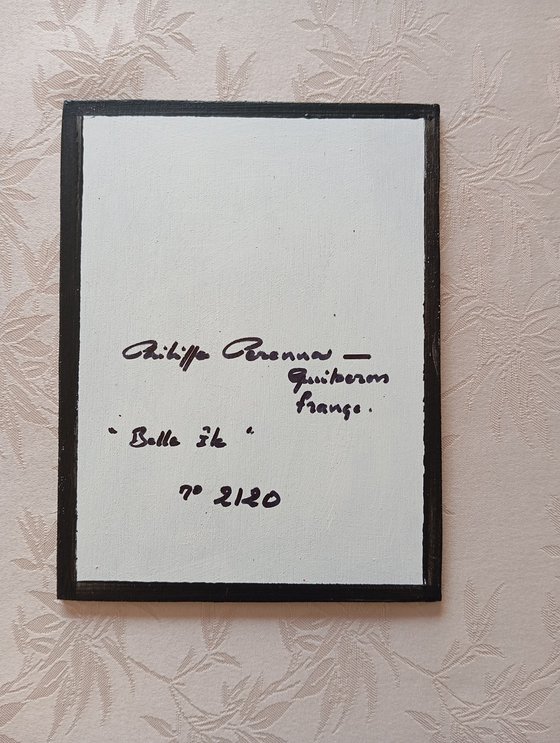 Philippe Perennou —
Quiberon
france.
" Belle Île "
n° 2120